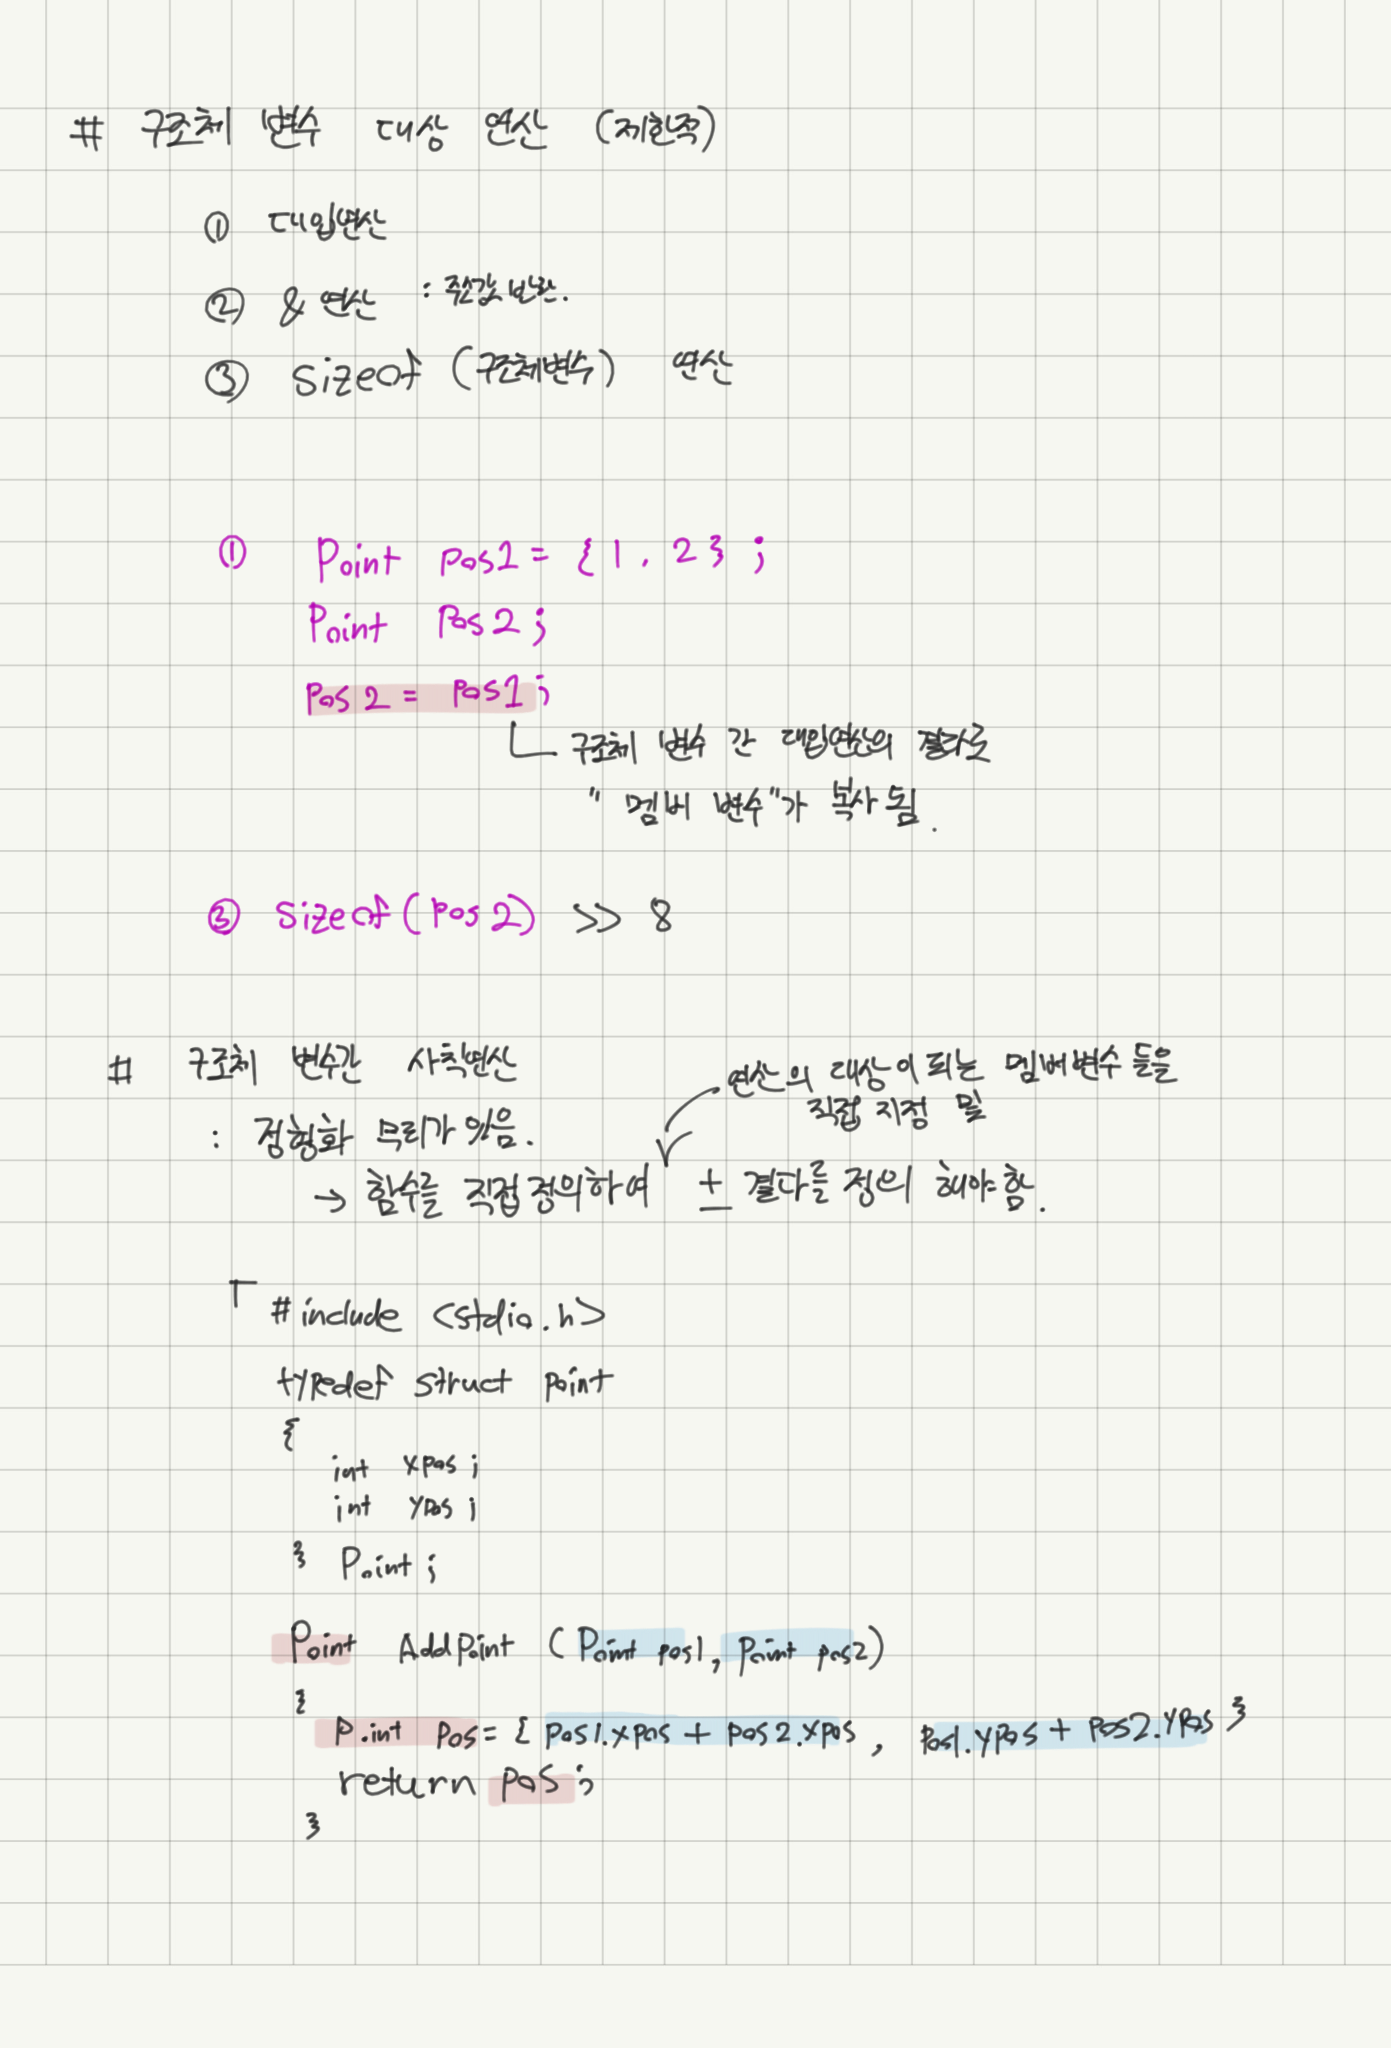 # 구조체 변수 대상 연산 (제한적)
① 대입연산
② & 연산 : 주솟값 반환.
③ sizeof (구조체변수) 연산
① Point pos1 = {1, 2};
Point pos2;
pos2 = pos1;
구조체 변수 간 대입연산의 결과로
"멤버 변수"가 복사 됨.
③ sizeof(pos2) >> 8
# 구조체 변수간 사칙연산
연산의 대상이 되는 멤버변수 들을
직접 지정 및
: 정형화 무리가 있음.
→ 함수를 직접 정의하여 ± 결과를 정의 해야함.
#include <stdio.h>
typedef struct point
{
int xpos;
int ypos;
} Point;
Point AddPoint (Point pos1, Point pos2)
{
Point pos = { pos1.xpos + pos2.xpos, pos1.ypos + pos2.ypos }
return pos;
}